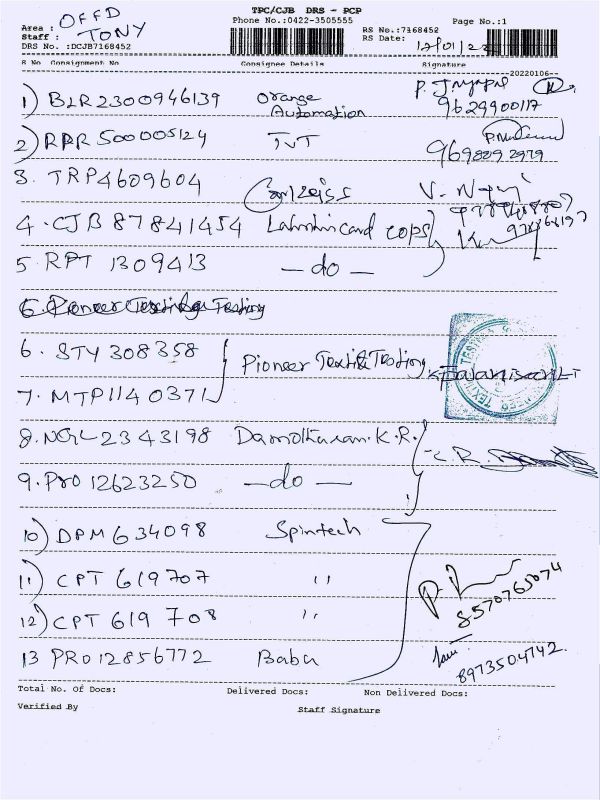 TPC/CJB DRS - PCP
Area : OFFD
Phone No.:0422-3505555
Page No.:1
Staff : TONY
RS No.:7168452
DRS No. :DCJB7168452
RS Date: 12/01/22
S No Consignment No Consignee Details Signature
20220106
1) BLR2300946139 Orange Automation
9629900117
2) RPR 500005124 TVT
9698092979
3. TRP4609604 Carlzeiss
4. CJB 87841454 cops
5. RPT 1309413 — do —
6. STY 308358 Pioneer Textile Testing
7. MTP1140371
8. NGL2343198 Damotharan.K.R.
9. PRO 12623250 — do —
10) DPM 634098 Spintech
11) CPT 619707 "
12) CPT 619 708 "
8570765074
13 PRO12856772 Baba
8973504742.
Total No. Of Docs: Delivered Docs: Non Delivered Docs:
Verified By Staff Signature